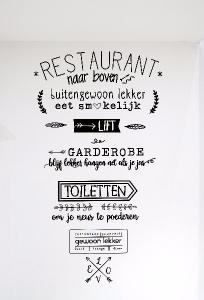 RESTAURANT
naar boven
buitengewoon lekker
eet smakelijk
LIFT
GARDEROBE
blijf lekker hangen net als je jas
TOILETTEN
om je neus te poederen
gewoon lekker
L E V O